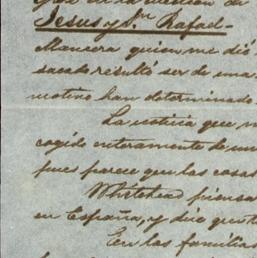 que en la elección de
Jesus y Sn Rafael-
Mancera quien me dió
sacado resultó ser de una
motivo han determinado
La noticia que m
cogido enteramente de un
pues parece que las cosas
Whitehead piensa
en España, y dice que
En las familias